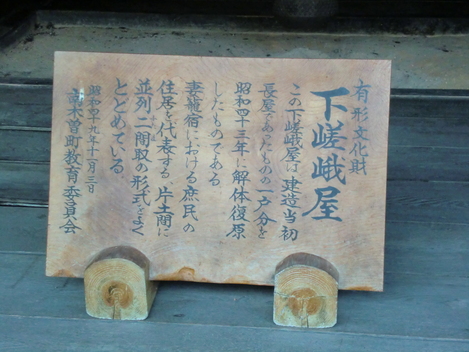 有形文化財
下嵯峨屋
この下嵯峨屋は、建造当初
長屋であったものの一戸分を
昭和四十三年に解体復原
したものである
妻籠宿における庶民の
住居を代表する、片土間に
並列二間取の形式をよく
とどめている。
昭和四十九年十一月三日
南木曽町教育委員会